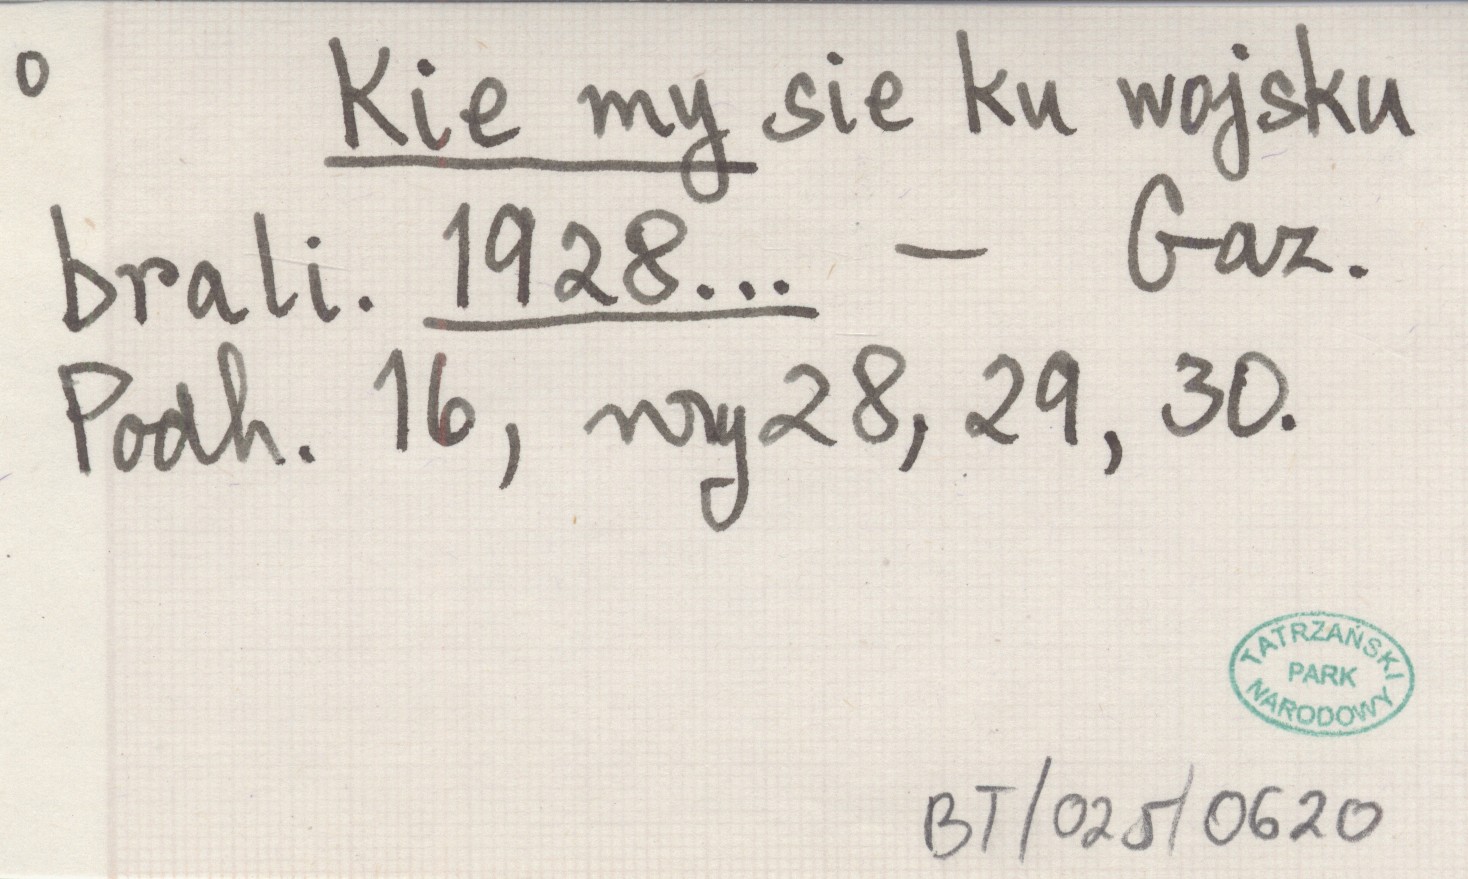 o Kie my sie ku wojsku
brali. 1928... — Gaz.
Podh. 16, nry 28, 29, 30.
TATRZAŃSKI
PARK
NARODOWY
BT/025/0620